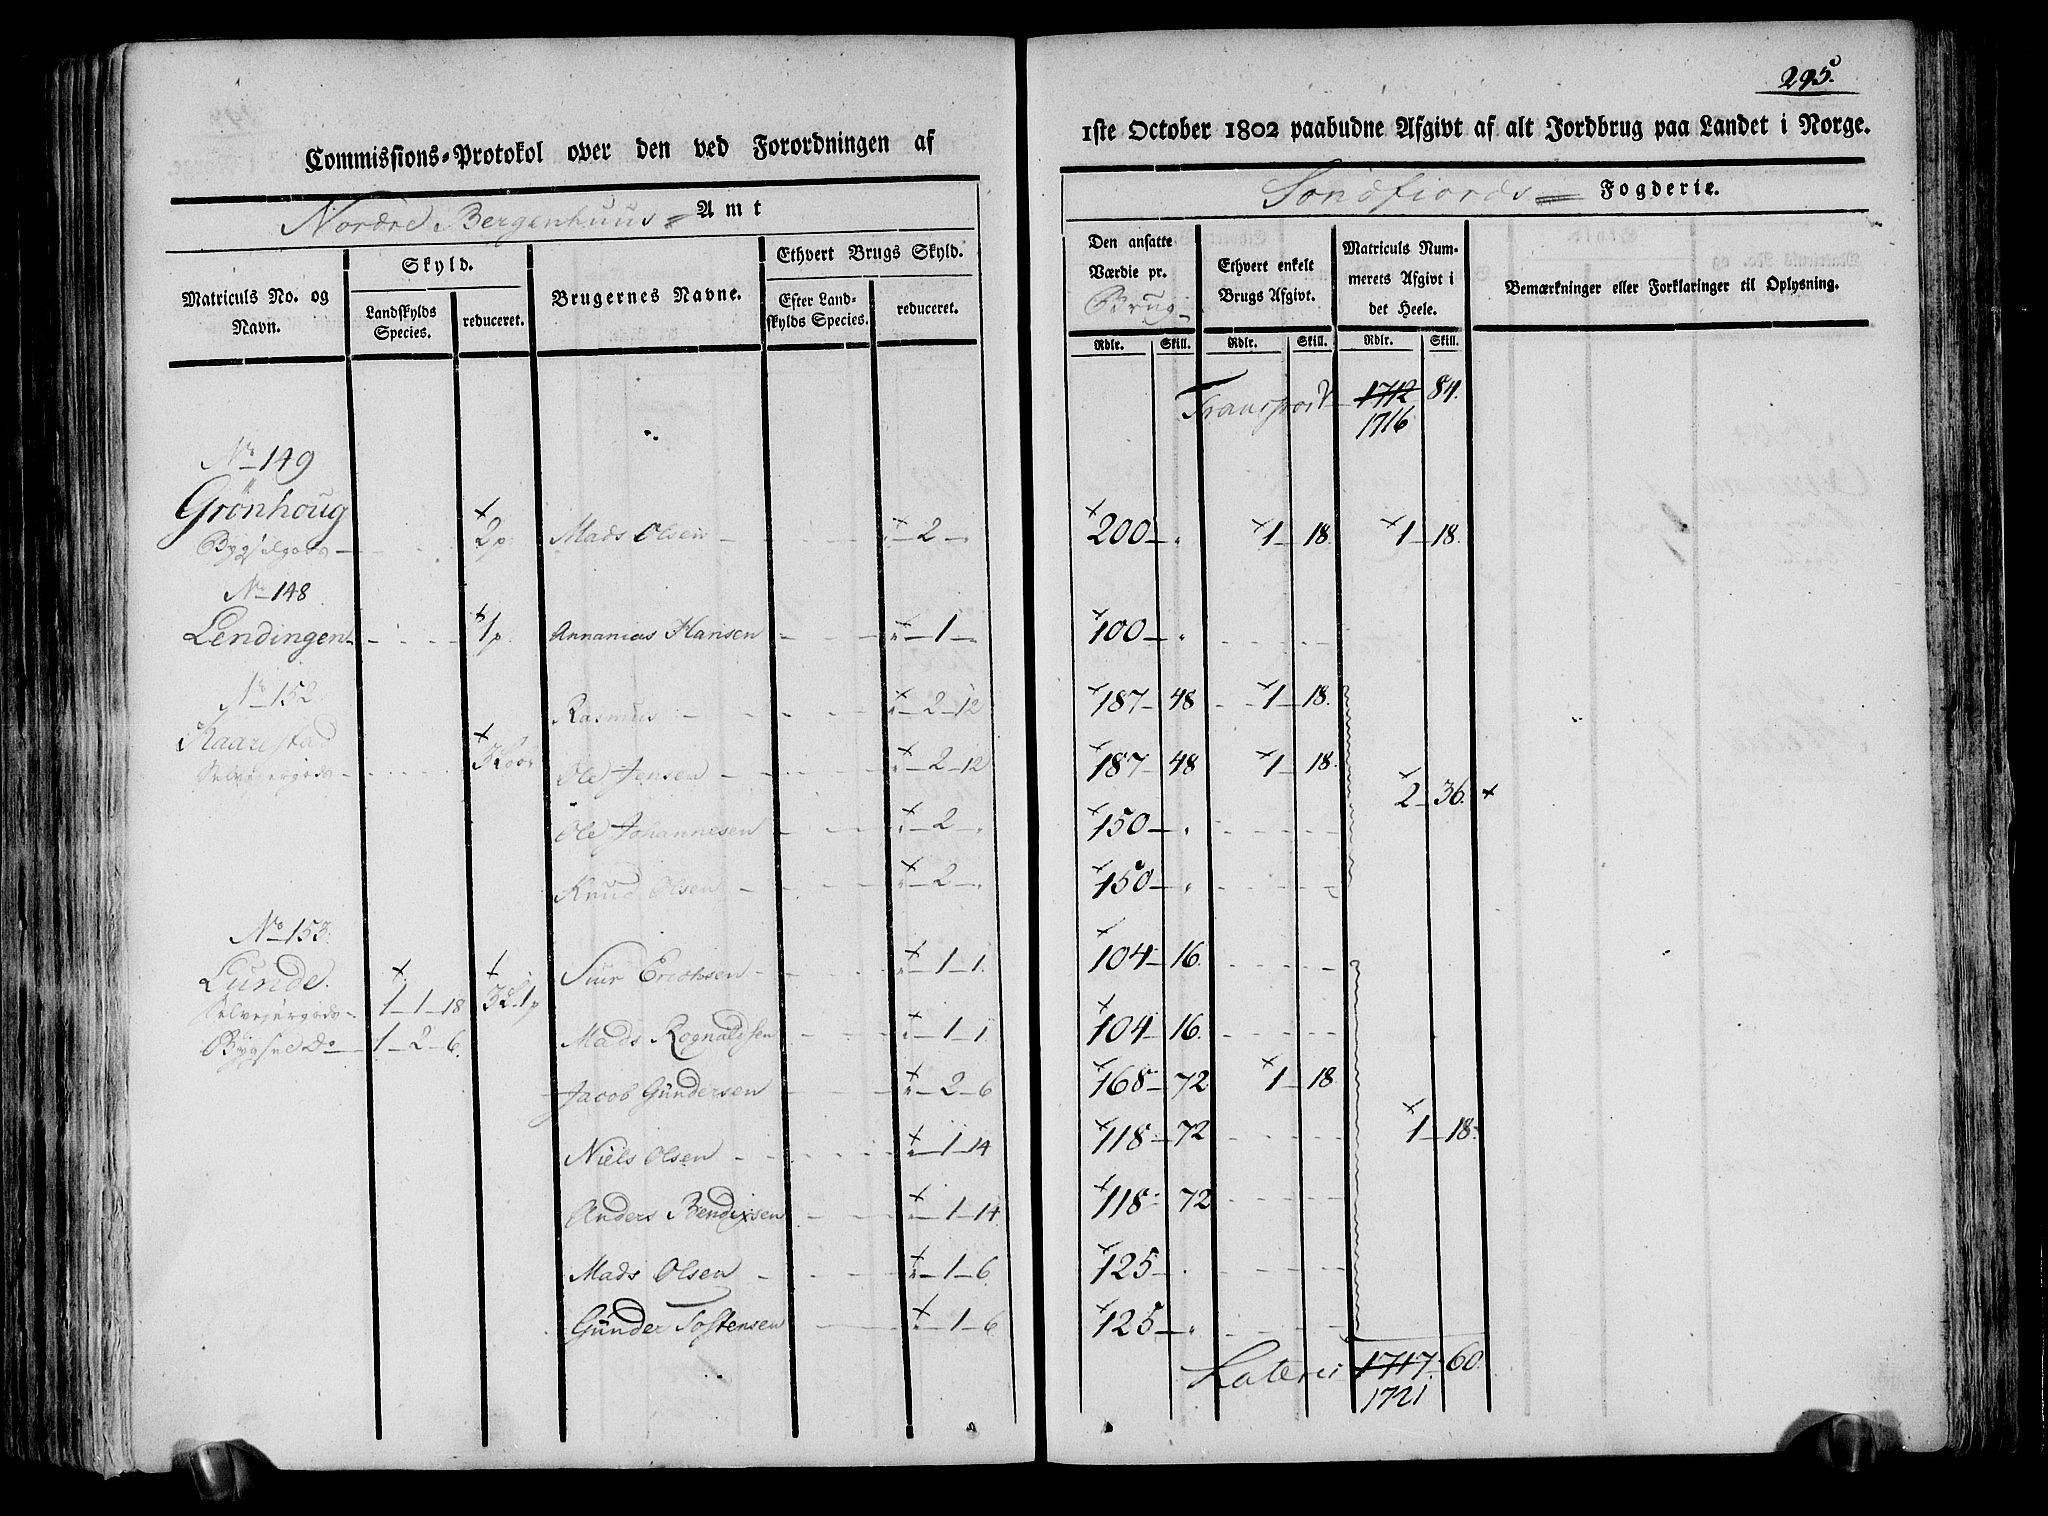 Commissions-Protokol over den ved Forordningen af
Nordre Bergenhuus Amt
Matriculs No. og Navn.
Skyld.
Landskylds Species.
reduceret.
Brugernes Navne.
Ethvert Brugs Skyld.
Efter Landskylds Species.
reduceret.
No 149
Grönhoug
Bygselgods 2 p. Mads Olsen " 2 "
No 148
Lendingen 1 p. Annanias Hansen " 1 "
No 152
Rasmus " 2 12
Kaarestad
Selvejergods Ole Jensen " 2 12
Ole Johannesen " 2 "
Knud Olsen " 2 "
No 153
Lunde Siur Erichsen " 1 1
Selvejergods 1 1 18
Bygsel Do 1 2 6 Mads Rognaldsen " 1 1
Jacob Gundersen " 2 6
Niels Olsen " 1 14
Anders Bendixsen " 1 14
Mads Olsen " 1 6
Gunder Tostensen " 1 6
295.
1ste October 1802 paabudne Afgivt af alt Jordbrug paa Landet i Norge.
Sondfiords Fogderie.
Den ansatte Værdie pr. Brug
Ethvert enkelt Brugs Afgivt.
Matriculs Nummerets Afgivt i det Heele.
Bemærkninger eller Forklaringer til Oplysning.
Rdlr. Skill. Rdlr. Skill. Rdlr. Skill.
Transport 1712 84.
1716
200 " 1 18. 1 18.
100 "
187 48 1 18.
187 48 1 18.
2 36.
150 "
150 "
104 16.
104 16.
168 72 1 18
118 72
1 18.
118 72
125 "
125 "
Lateris 1717 60.
1721